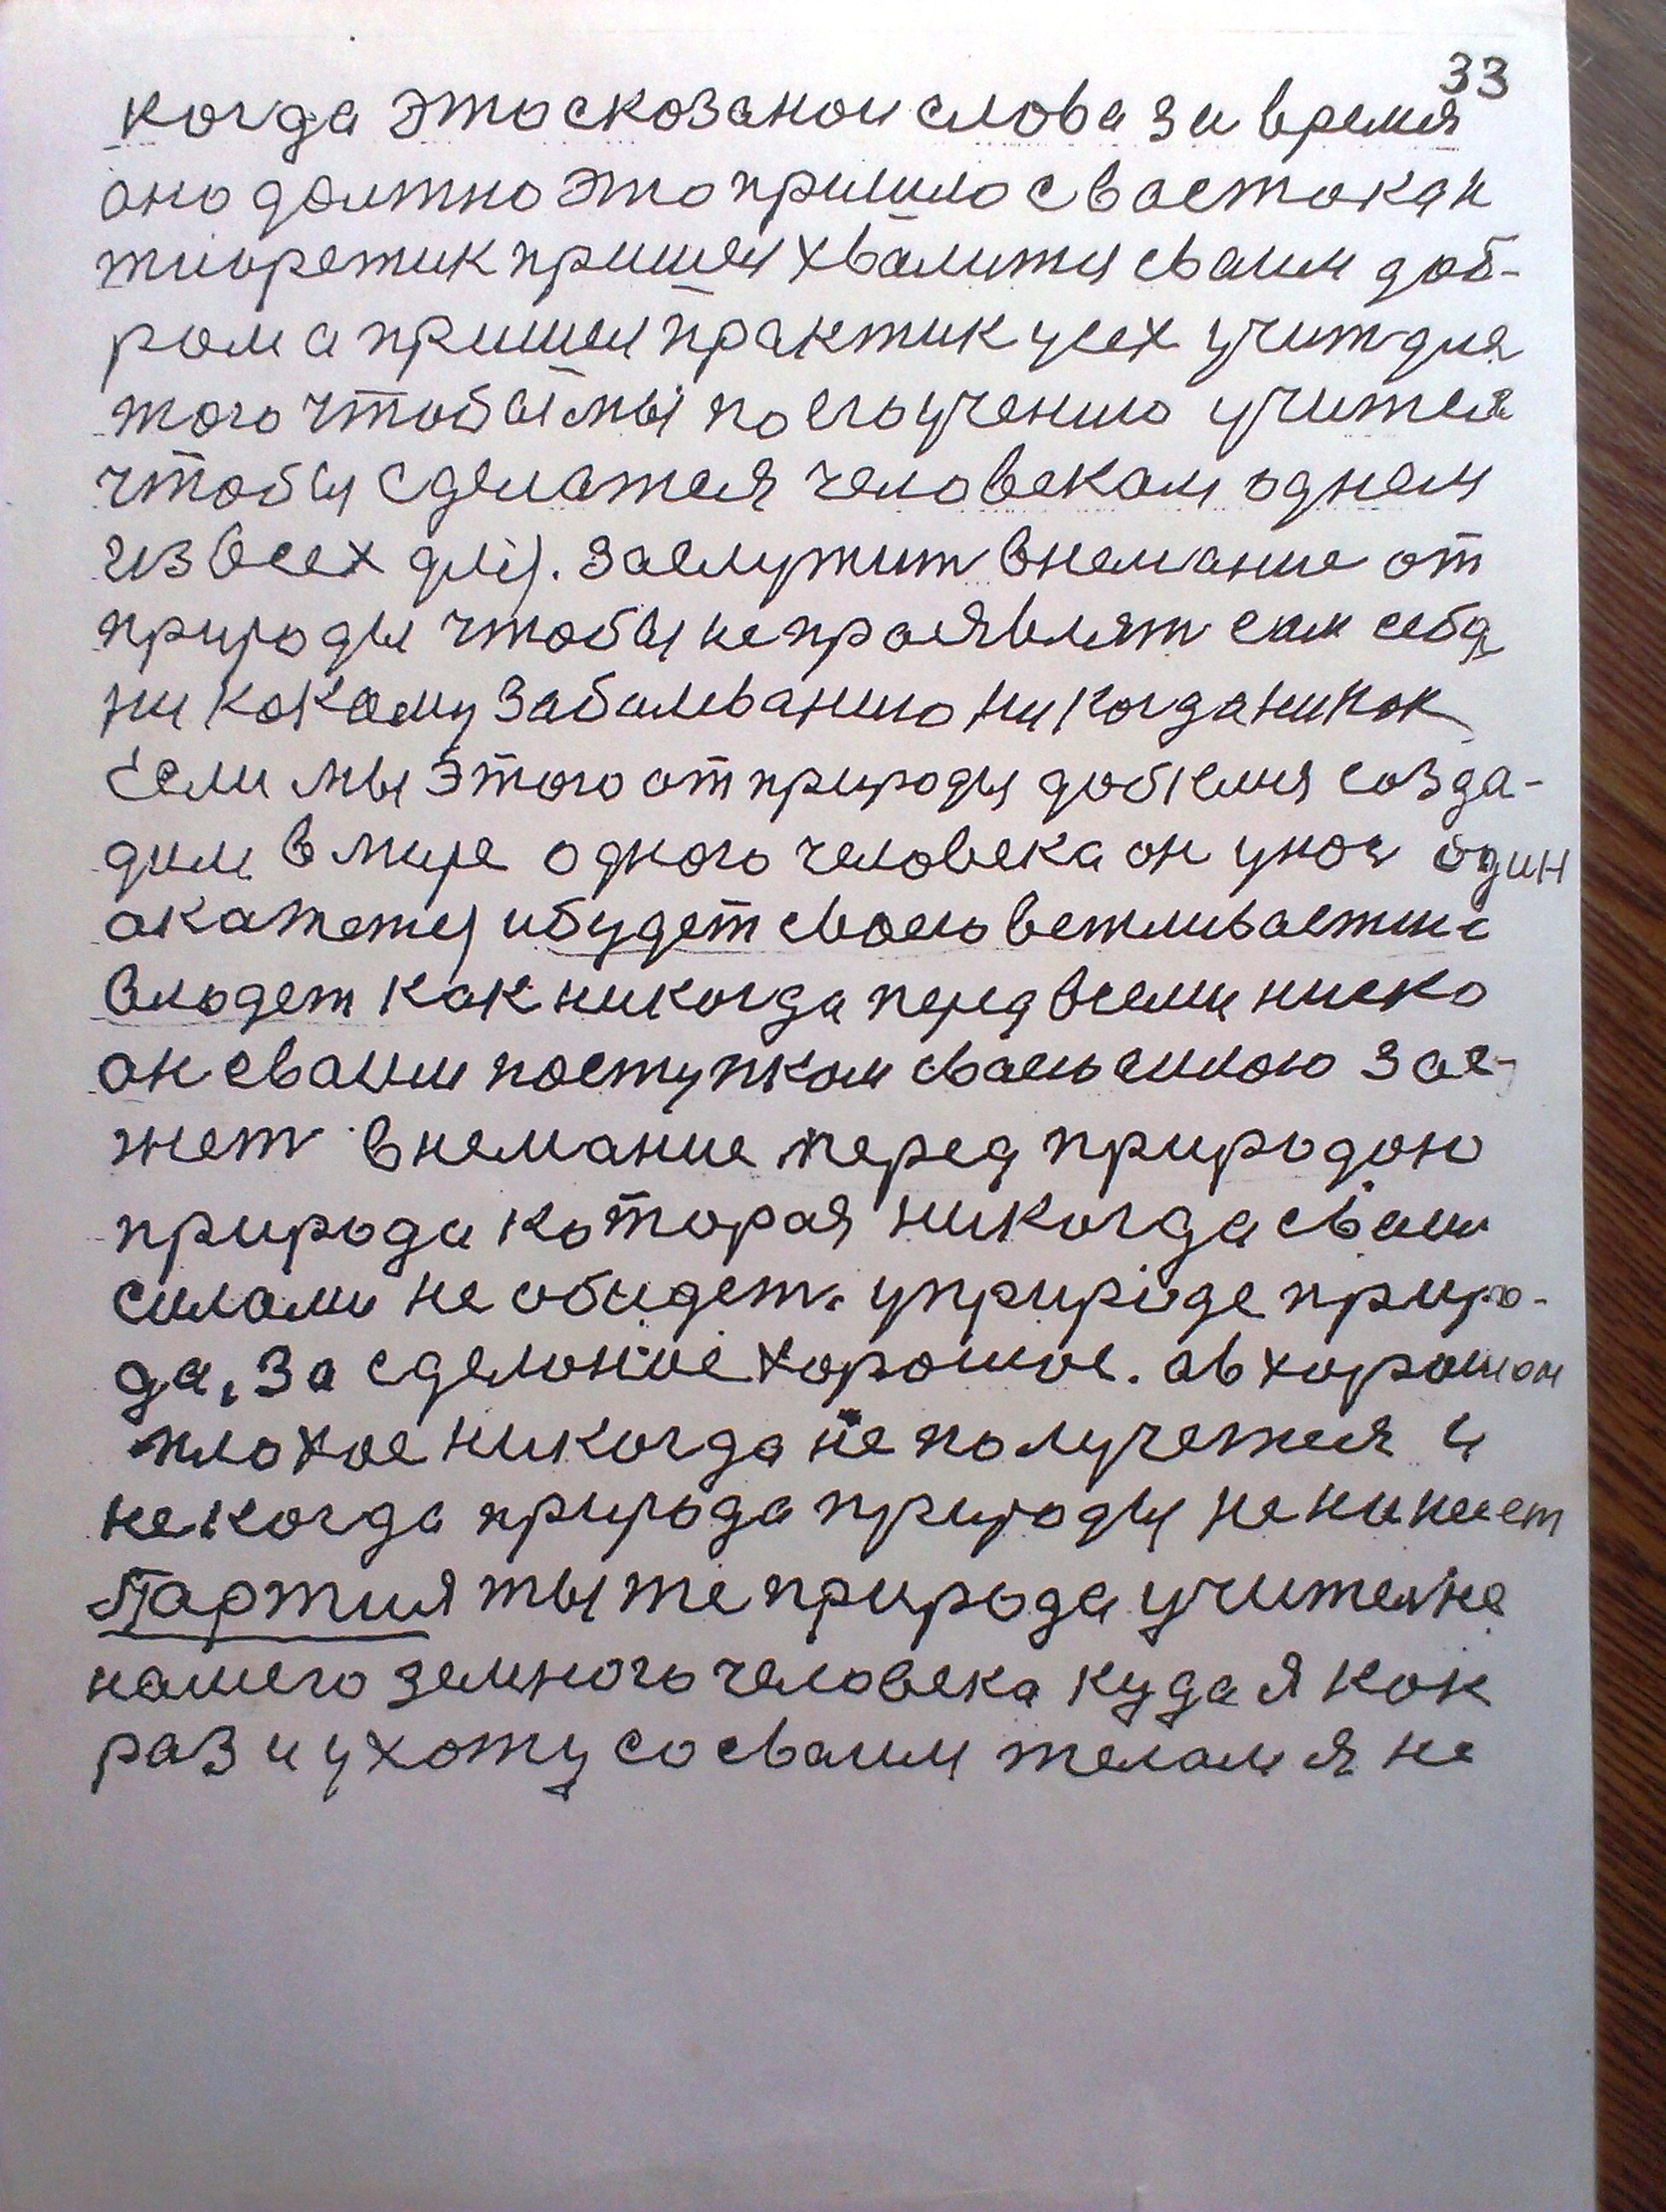 33
когда это сказанои слова за время
оно должно это пришло с востока н
тиоретик пришел хвалится сваим доб-
ром а пришел практик усех учит для
того чтобы мы по его учению учится
чтобы сделатся человекам однем
из всех для. заслужит внемание от
природы чтобы не проевлят сам себя
ни какому забалеванию ни когда ни как
Если мы этого от природы добъемся созда-
дим в мире одного человека он у нас один
окажется и будет своею вежливастию
владет как никогда перед всеми ниско
он сваим поступком сваею силою зас-
жет внемание перед природою
природа которая никогда сваим
силами не обидет. у природе приро-
да, за сделоное хорошое. ав хорошом
плохое никогда не получется и
некогда природа природы не
Партия ты же природа учителя не
нашего земного человека куда я как
раз и ухожу со сваим телам я не